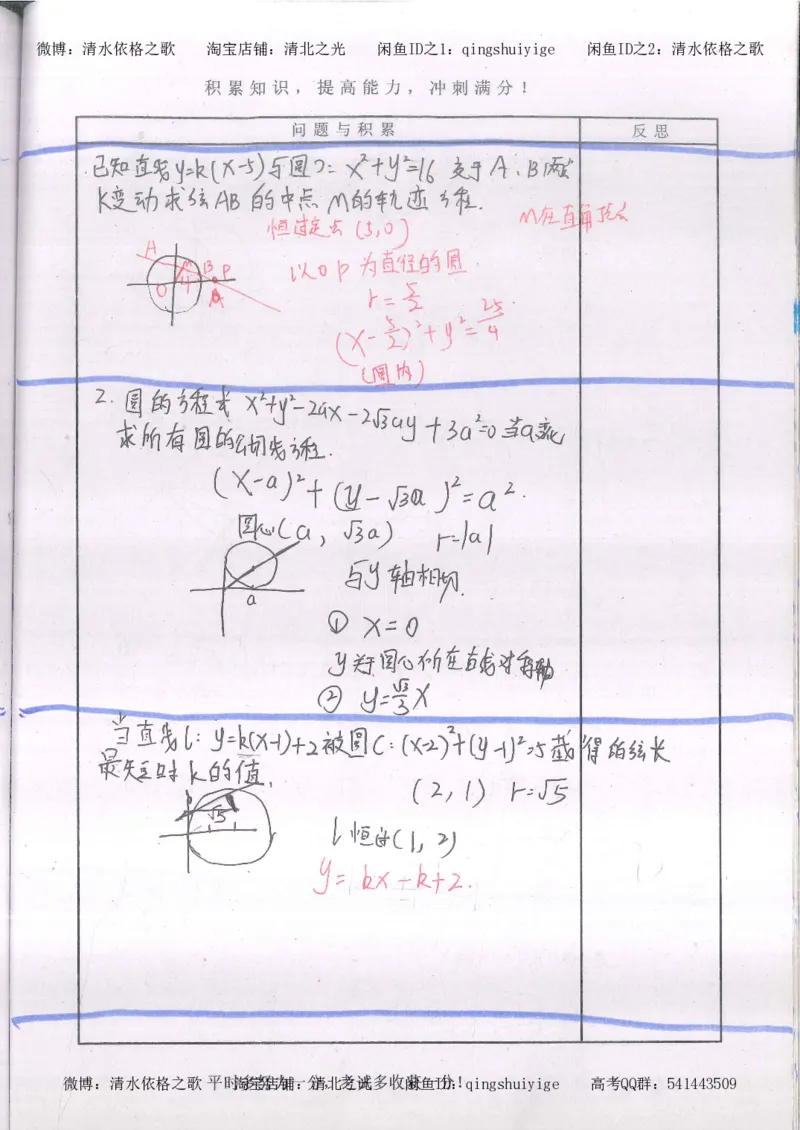 微博：清水依格之歌 淘宝店铺：清北之光 闲鱼ID之1：qingshuiyige 闲鱼ID之2：清水依格之歌
积累知识，提高能力，冲刺满分！
问题与积累 反思
已知直线y=k(x-5)与圆O：x²+y²=16 交于A、B两点
K变动求弦AB的中点M的轨迹方程.
恒过定点(5,0)
M在直角顶点
A
M
B
P
O
4
以OP为直径的圆
r=5/2
(x-5/2)²+y²=25/4
(圆内)
2. 圆的方程式 x²+y²-2ax-2√3ay+3a²=0当a变化
求所有圆的公切线方程.
(x-a)²+(y-√3a)²=a².
圆心(a, √3a) r=|a|
a
与y轴相切.
① x=0
y关于圆心所在直线对称轴
② y=√3/3 x
当直线l：y=k(x-1)+2被圆C：(x-2)²+(y-1)²=5截得的弦长
最短时k的值.
(2,1) r=√5
√5
l恒过(1,2)
y=kx-k+2.
微博：清水依格之歌 淘宝店铺：清北之光 闲鱼ID：qingshuiyige 高考QQ群：541443509